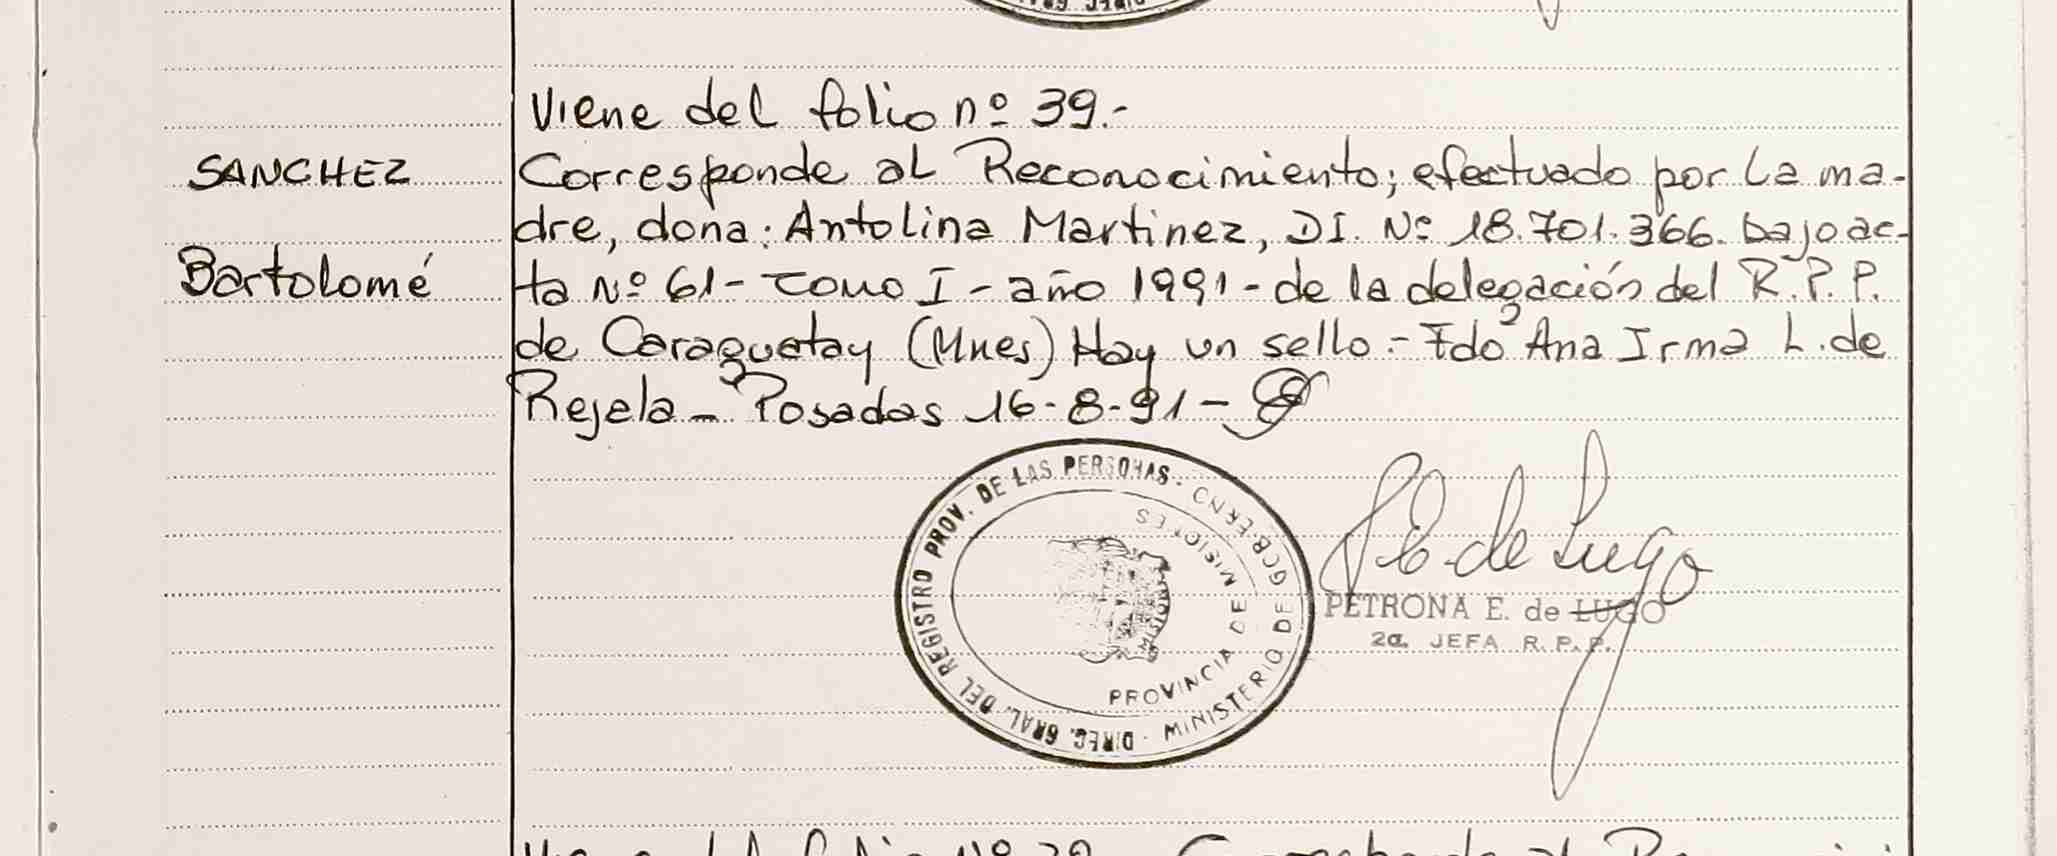 Viene del folio nº 39.-
SANCHEZ
Corresponde al Reconocimiento; efectuado por la ma-
dre, dona: Antolina Martinez, DI. Nº 18.701.366. bajo ac-
Bartolomé
ta Nº 61- Tomo I - año 1991 - de la delegación del R.P.P.
de Caraguatay (Mnes) Hay un sello.- Fdo Ana Irma L. de
Rejela - Posadas 16-8-91 -
DIREC. GRAL. DEL REGISTRO PROV. DE LAS PERSONAS - MINISTERIO DE GOBIERNO
PROVINCIA DE MISIONES
P E. de Lugo
PETRONA E. de LUGO
2a. JEFA R. P. P.